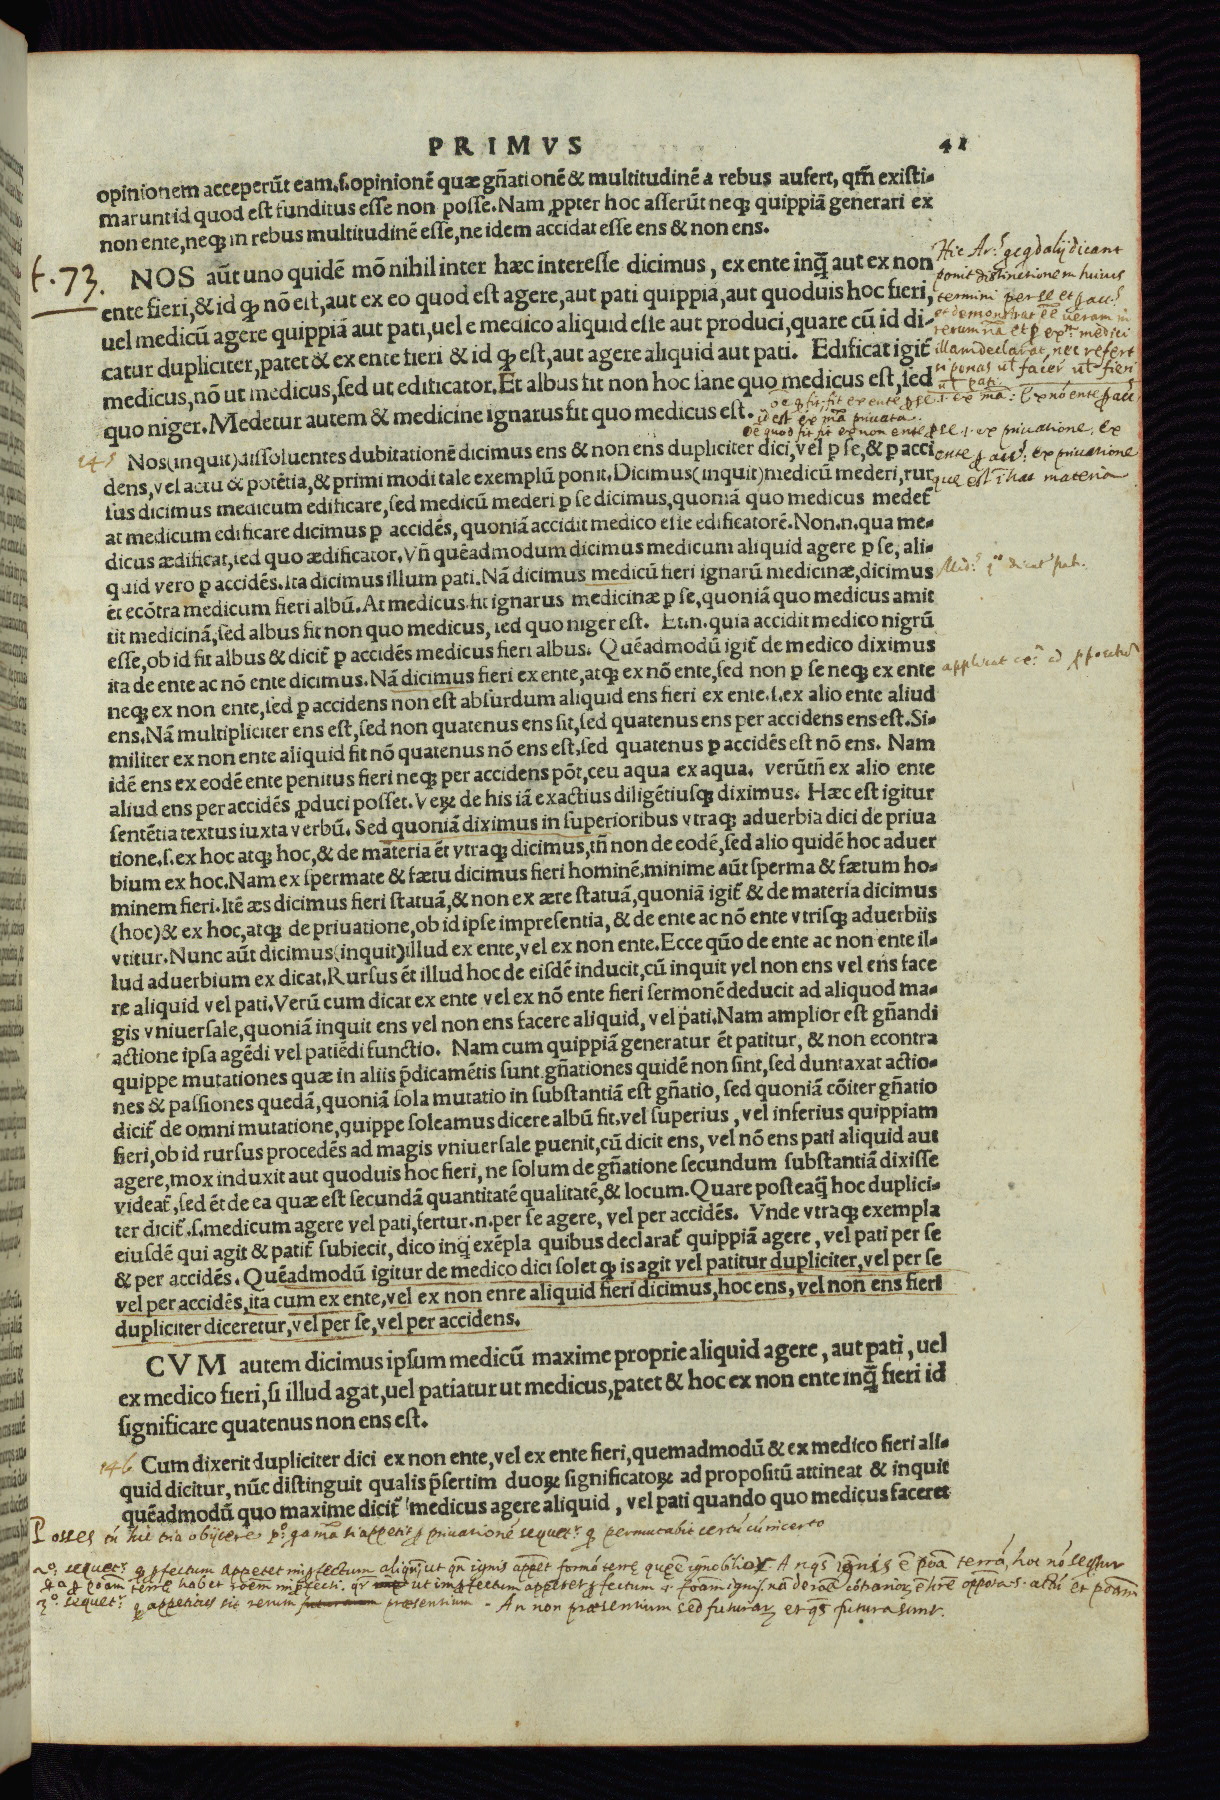 PRIMVS 41
opinionem acceperũt eam.ſ.opinionẽ quæ gñationẽ & multitudinẽ a rebus aufert, qm̃ exiſti-
marunt id quod eſt funditus eſſe non poſſe. Nam ꝓpter hoc aſſerũt neqꝫ quippiã generari ex
non ente, neqꝫ in rebus multitudinẽ eſſe, ne idem accidat eſſe ens & non ens.
t. 73.
NOS aũt uno quidẽ mõ nihil inter hæc intereſſe dicimus, ex ente inq̃ aut ex non
ente fieri, & id qꝫ nõ eſt, aut ex eo quod eſt agere, aut pati quippiã, aut quoduis hoc fieri,
uel medicũ agere quippiã aut pati, uel e medico aliquid eſſe aut produci, quare cũ id di-
catur dupliciter, patet & ex ente fieri & id qꝫ eſt, aut agere aliquid aut pati. Edificat igit̃
medicus, nõ ut medicus, ſed ut edificator. Et albus fit non hoc ſane quo medicus eſt, ſed
quo niger. Medetur autem & medicine ignarus fit quo medicus eſt.
ponit distinctionem huius
termini per se et
illam declarat, nec refert
ut pati
145
Nos(inquit)diſſoluentes dubitationẽ dicimus ens & non ens dupliciter dici, vel ꝑ ſe, & ꝑ acci
dens, vel actu & potẽtia, & primi modi tale exemplũ ponit. Dicimus(inquit)medicũ mederi, rur
ſus dicimus medicum edificare, ſed medicũ mederi ꝑ ſe dicimus, quoniã quo medicus medet̃
at medicum edificare dicimus ꝑ accidẽs, quoniã accidit medico eſſe edificatorẽ. Non.n.qua me-
dicus ædificat, ſed quo ædificator. Vñ quẽadmodum dicimus medicum aliquid agere ꝑ ſe, ali-
quid vero ꝑ accidẽs. ita dicimus illum pati. Nã dicimus medicũ fieri ignarũ medicinæ, dicimus
ẽt ecõtra medicum fieri albũ. At medicus fit ignarus medicinæ ꝑ ſe, quoniã quo medicus amit
tit medicinã, ſed albus fit non quo medicus, ſed quo niger eſt. Et.n.quia accidit medico nigrũ
eſſe, ob id fit albus & dicit̃ ꝑ accidẽs medicus fieri albus. Quẽadmodũ igit̃ de medico diximus
ita de ente ac nõ ente dicimus. Nã dicimus fieri ex ente, atqꝫ ex nõ ente, ſed non ꝑ ſe neqꝫ ex ente
neqꝫ ex non ente, ſed ꝑ accidens non eſt abſurdum aliquid ens fieri ex ente.ſ.ex alio ente aliud
ens. Nã multipliciter ens eſt, ſed non quatenus ens ſit, ſed quatenus ens per accidens ens eſt. Si-
militer ex non ente aliquid fit nõ quatenus nõ ens eſt, ſed quatenus ꝑ accidẽs eſt nõ ens. Nam
idẽ ens ex eodẽ ente penitus fieri neqꝫ per accidens põt, ceu aqua ex aqua. verũtñ ex alio ente
aliud ens per accidẽs ꝓduci poſſet. Veꝝ de his iã exactius diligẽtiuſqꝫ diximus. Hæc eſt igitur
ſentẽtia textus iuxta verbũ. Sed quoniã diximus in ſuperioribus vtraqꝫ aduerbia dici de priua
tione.ſ.ex hoc atqꝫ hoc, & de materia ẽt vtraqꝫ dicimus, tñ non de eodẽ, ſed alio quidẽ hoc aduer
bium ex hoc. Nam ex ſpermate & fætu dicimus fieri hominẽ, minime aũt ſperma & fætum ho-
minem fieri. Itẽ æs dicimus fieri ſtatuã, & non ex ære ſtatuã, quoniã igit̃ & de materia dicimus
(hoc) & ex hoc, atqꝫ de priuatione, ob id ipſe impreſentia, & de ente ac nõ ente vtriſqꝫ aduerbiis
vtitur. Nunc aũt dicimus(inquit)illud ex ente, vel ex non ente. Ecce quõ de ente ac non ente il-
lud aduerbium ex dicat. Rurſus ẽt illud hoc de eiſdẽ inducit, cũ inquit vel non ens vel ens face
re aliquid vel pati. Verũ cum dicat ex ente vel ex nõ ente fieri ſermonẽ deducit ad aliquod ma-
gis vniuerſale, quoniã inquit ens vel non ens facere aliquid, vel pati. Nam amplior eſt gñandi
actione ipſa agẽdi vel patiẽdi functio. Nam cum quippiã generatur ẽt patitur, & non econtra
quippe mutationes quæ in aliis p̃dicamẽtis ſunt gñationes quidẽ non ſint, ſed duntaxat actio-
nes & paſſiones quedã, quoniã ſola mutatio in ſubſtantiã eſt gñatio, ſed quoniã cõiter gñatio
dicit̃ de omni mutatione, quippe ſoleamus dicere albũ fit. vel ſuperius, vel inferius quippiam
fieri, ob id rurſus procedẽs ad magis vniuerſale ꝑuenit, cũ dicit ens, vel nõ ens pati aliquid aut
agere, mox induxit aut quoduis hoc fieri, ne ſolum de gñatione ſecundum ſubſtantiã dixiſſe
videat̃, ſed ẽt de ea quæ eſt ſecundã quantitatẽ qualitatẽ, & locum. Quare poſteaq̃ hoc duplici-
ter dicit̃.ſ.medicum agere vel pati, fertur.n.per ſe agere, vel per accidẽs. Vnde vtraqꝫ exempla
eiuſdẽ qui agit & patit̃ ſubiecit, dico inq̃ exẽpla quibus declarat̃ quippiã agere, vel pati per ſe
& per accidẽs. Quẽadmodũ igitur de medico dici ſolet qꝫ is agit vel patitur dupliciter, vel per ſe
vel per accidẽs, ita cum ex ente, vel ex non enre aliquid fieri dicimus, hoc ens, vel non ens fieri
dupliciter diceretur, vel per ſe, vel per accidens.
CVM autem dicimus ipſum medicũ maxime proprie aliquid agere, aut pati, uel
ex medico fieri, ſi illud agat, uel patiatur ut medicus, patet & hoc ex non ente inq̃ fieri id
ſignificare quatenus non ens eſt.
146
Cum dixerit dupliciter dici ex non ente, vel ex ente fieri, quemadmodũ & ex medico fieri ali-
quid dicitur, nũc diſtinguit qualis p̃ſertim duoꝝ ſignificatoꝝ ad propoſitũ attineat & inquit
quẽadmodũ quo maxime dicit̃ medicus agere aliquid, vel pati quando quo medicus faceret
Posses tñ hic tria obijcere
appetit sic rerum praesentium - An non praesentium sed futurarum et